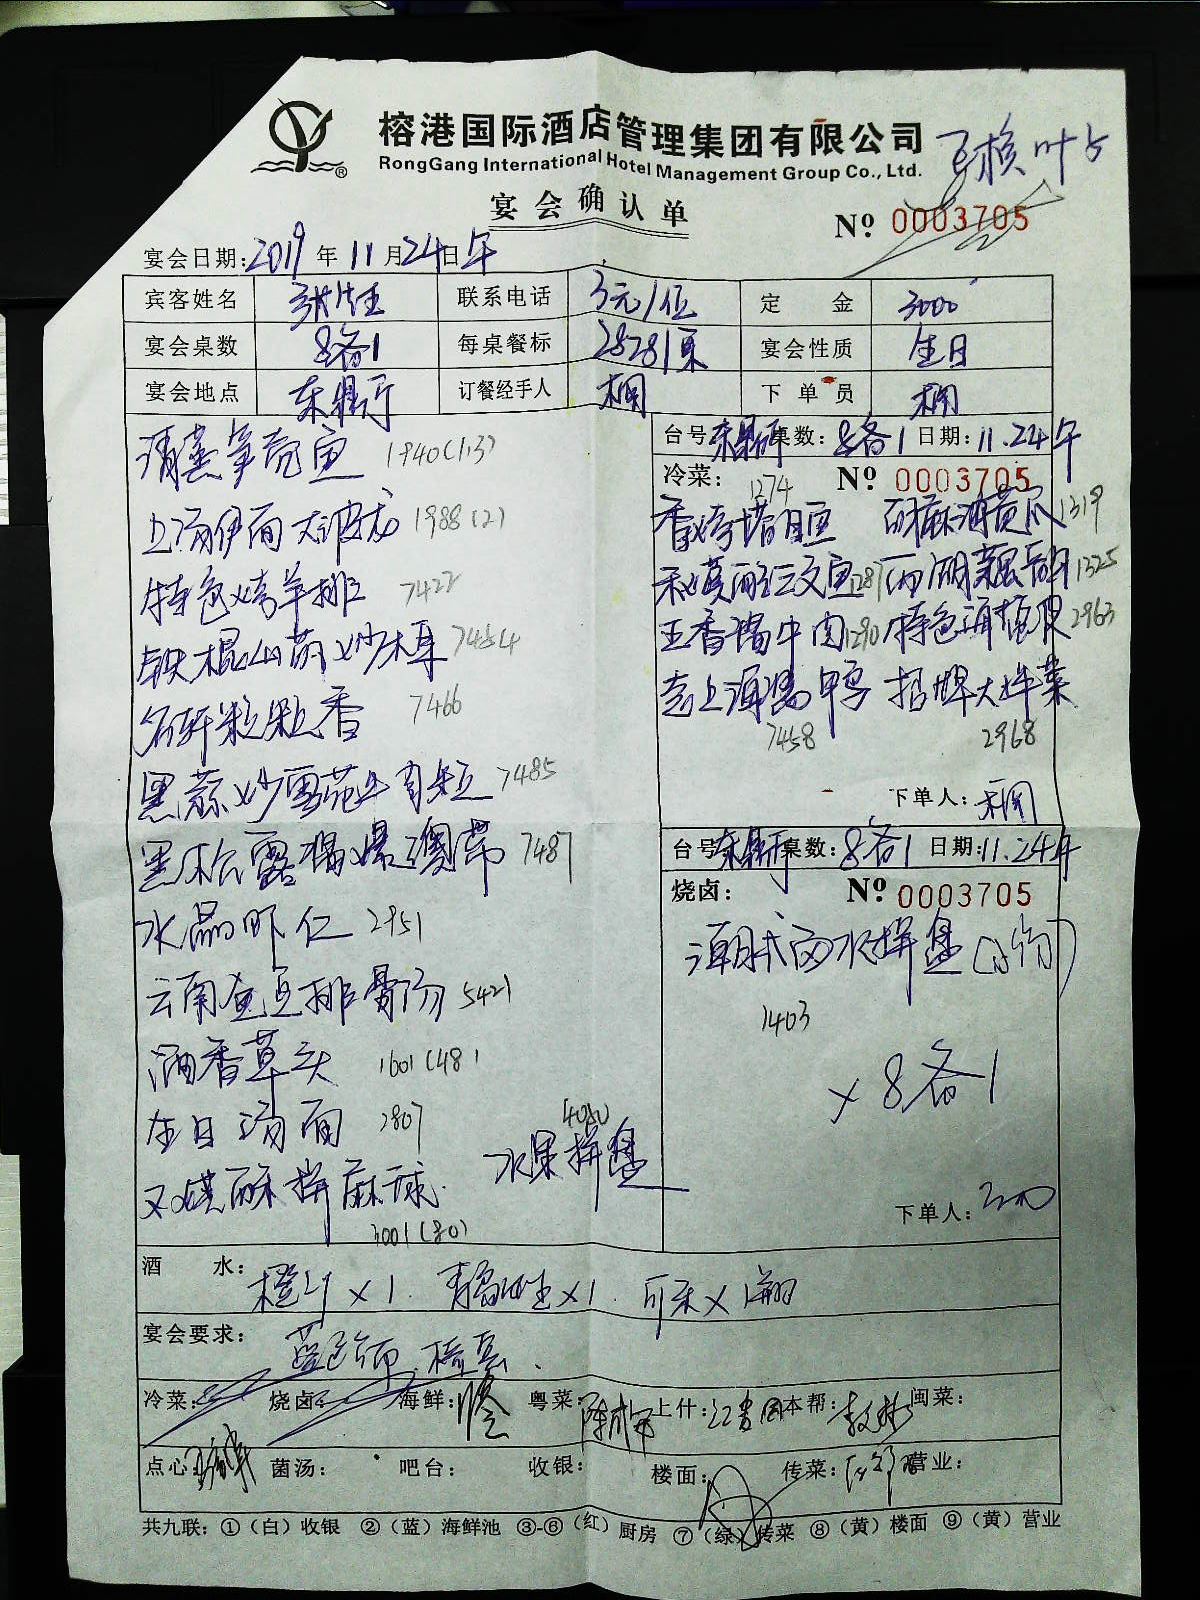 榕港国际酒店管理集团有限公司
RongGang International Hotel Management Group Co., Ltd.
宴会确认单
№ 0003705
宴会日期: 2019 年 11 月 24 日 午
宾客姓名 联系电话 3元/位 定金 3000
宴会桌数 8备1 每桌餐标 2828/桌 宴会性质 生日
宴会地点 东鼎厅 订餐经手人 下单员
清蒸笋壳鱼 1940(1.3)
上汤伊面大波龙 1988(2)
特色烤羊排 7422
铁棍山药炒木耳 7454
名轩粒粒香 7466
黑蒜炒雪花牛肉粒 7485
黑松露酱爆澳带 7487
水晶虾仁 2951
云南鱼豆排骨汤 5421
酒香草头 1601(48)
生日汤面 2807
叉烧酥拼麻球 3001(80)
水果拼盘 4080
台号: 东鼎厅 桌数: 8备1 日期: 11.24午
冷菜: № 0003705
1274
1319
287 1325
五香酱牛肉 1290 2963
老上海酱鸭 招牌大拌菜
7458 2968
下单人:
台号: 东鼎厅 桌数: 8备1 日期: 11.24午
烧卤: № 0003705
潮式卤水拼盘
1403
× 8备1
下单人:
酒水: 橙汁×1. ×1. 可乐×1
宴会要求: 蓝色
冷菜: 烧卤: 海鲜: 粤菜: 上什: 本帮: 闽菜:
点心: 菌汤: 吧台: 收银: 楼面: 传菜: 营业:
共九联: ①(白)收银 ②(蓝)海鲜池 ③-⑥(红)厨房 ⑦(绿)传菜 ⑧(黄)楼面 ⑨(黄)营业